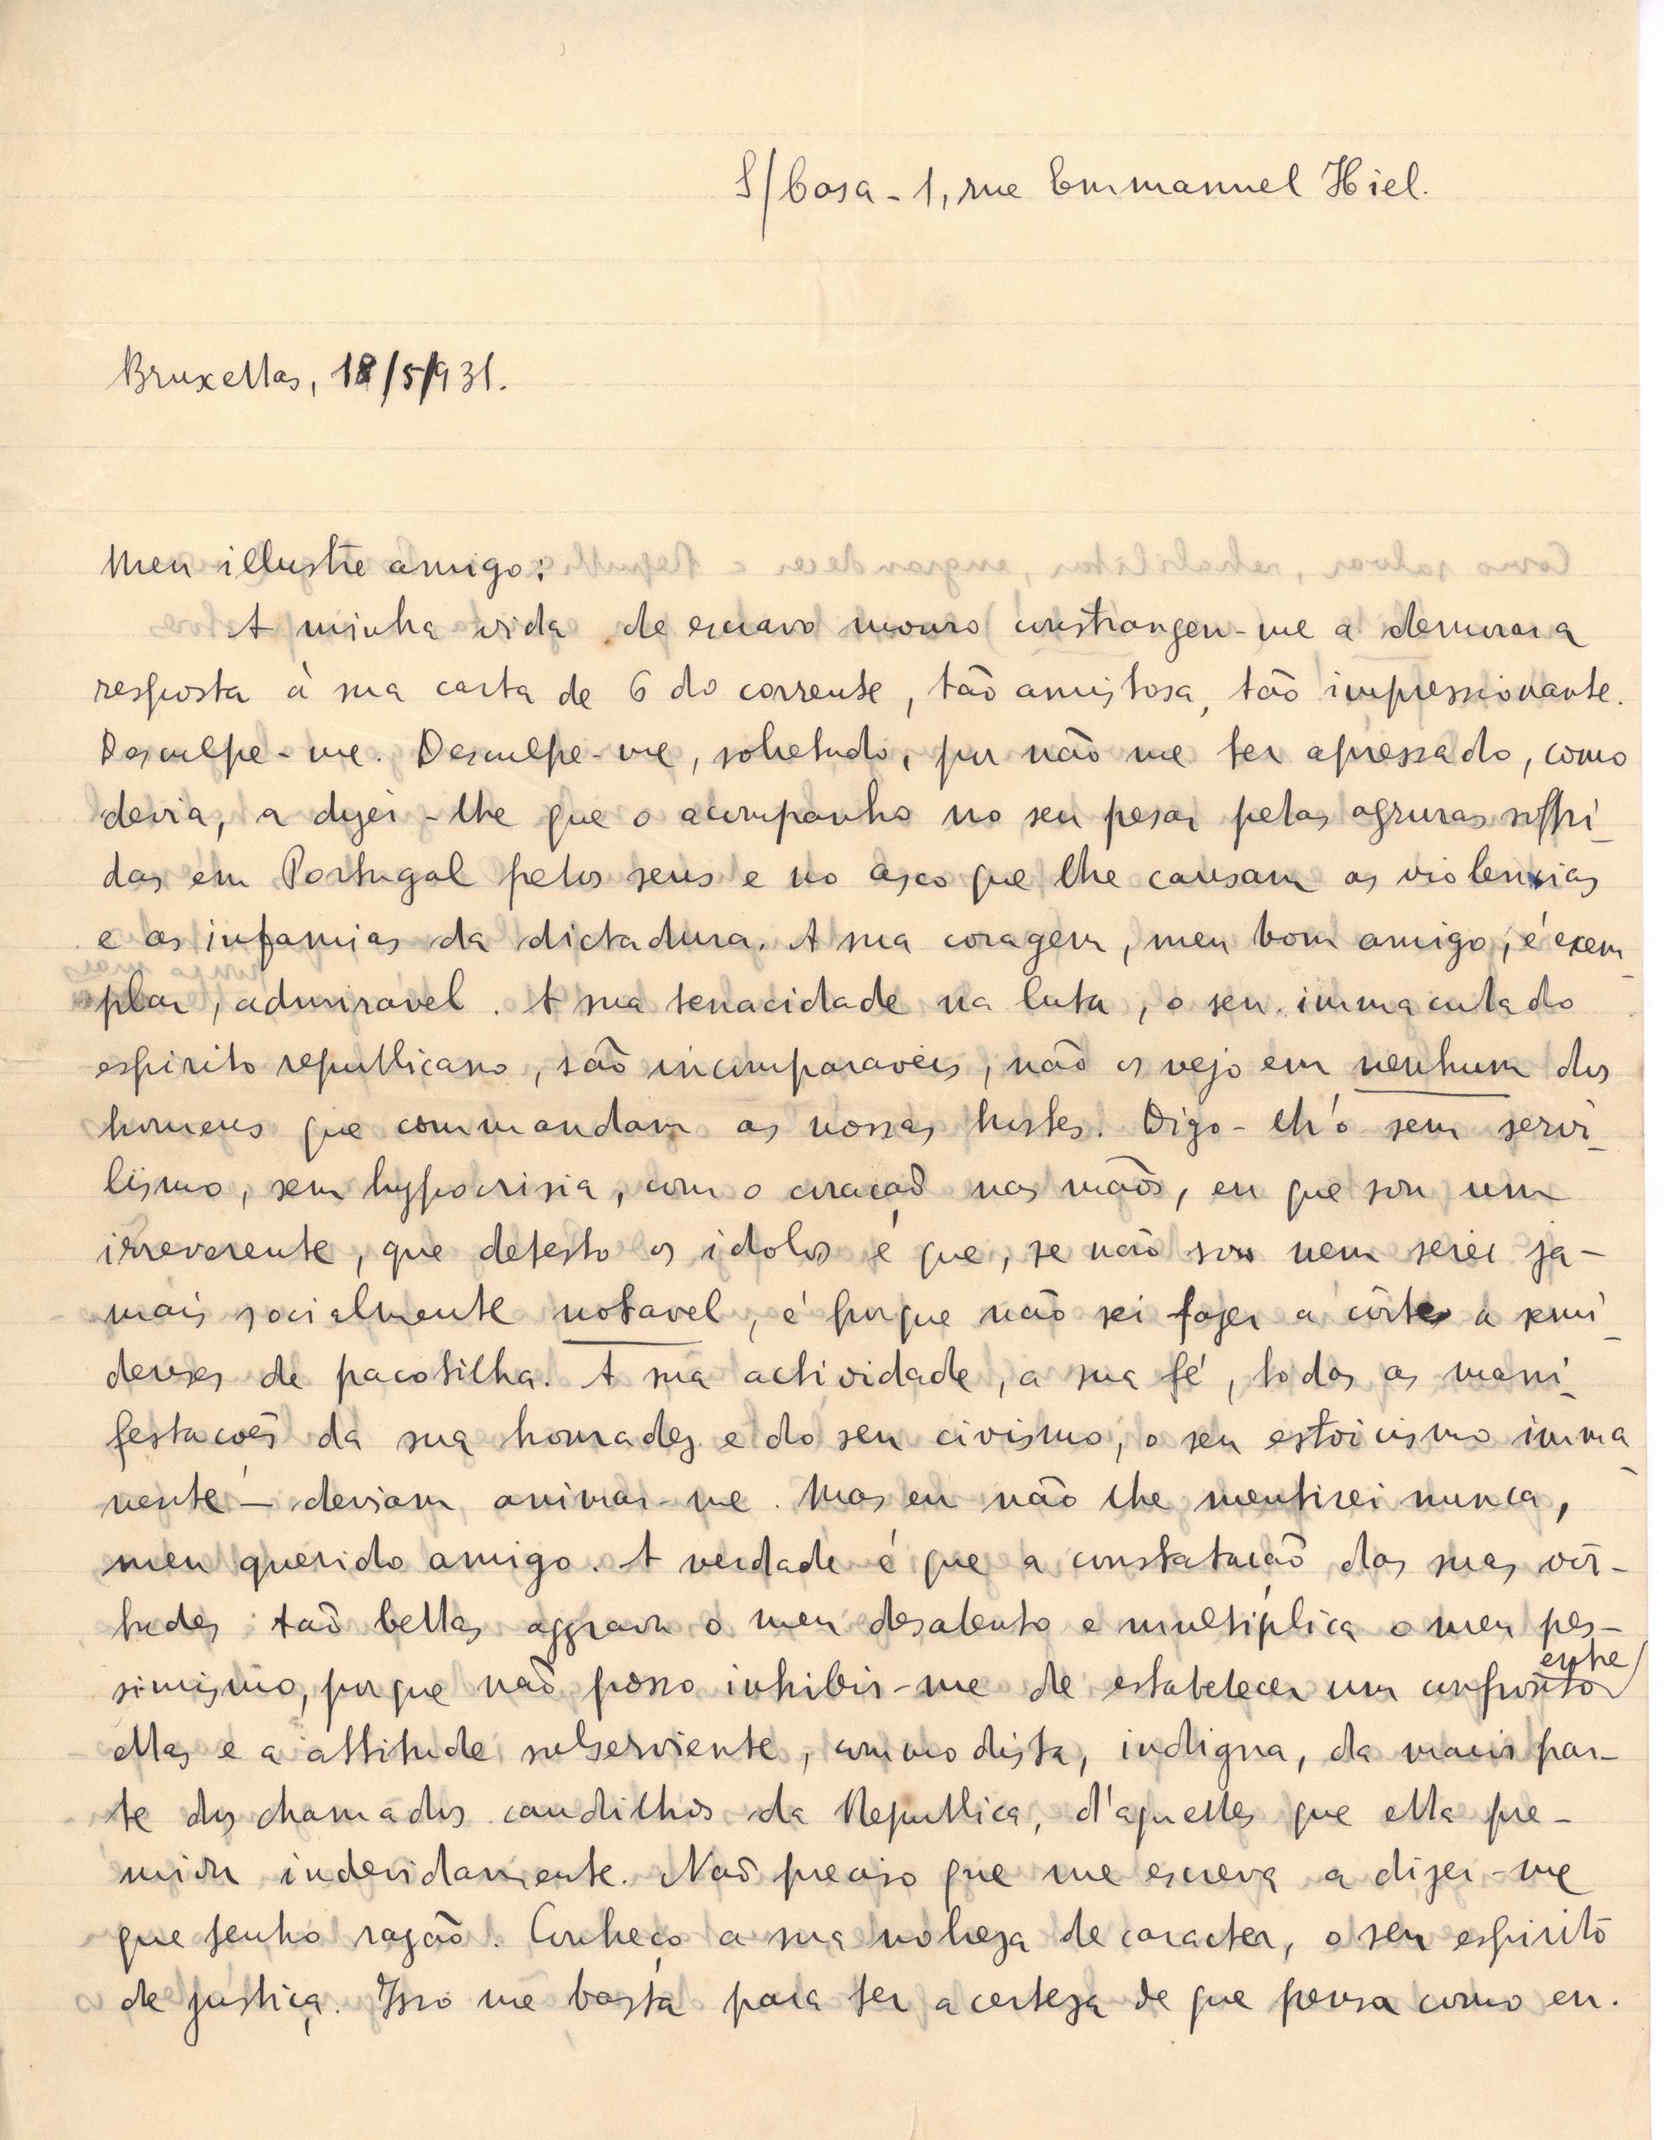 S/Casa - 1, rue Emmanuel Hiel.
Bruxellas, 18/5/931.
Meu illustre amigo:
A minha vida de escravo mouro constrangeu-me a demorar a
resposta á sua carta de 6 do corrente, tão amistosa, tão impressionante.
Desculpe-me. Desculpe-me, sobretudo, por não me ter apressado, como
devia, a dizer-lhe que o acompanho no seu pesar pelas agruras soffri-
das em Portugal pelos seus e no asco que lhe causam as violencias
e as infamias da dictadura. A sua coragem, meu bom amigo, é exem-
plar, admiravel. A sua tenacidade na luta, o seu immaculado
espirito republicano, são incomparaveis, não os vejo em nenhum dos
homens que commandam as nossas hostes. Digo-lh'o sem servi-
lismo, sem hypocrisia, com o coração nas mãos, eu que sou um
irreverente, que detesto os idolos e que, se não sou nem serei ja-
mais socialmente notavel, é porque não sei fazer a côrte a semi-
deuses de pacotilha. A sua actividade, a sua fé, todas as mani-
festações da sua honradez e do seu civismo, o seu estoicismo imma-
nente - deviam animar-me. Mas eu não lhe mentirei nunca,
meu querido amigo. A verdade é que a constatação das suas vir-
tudes tão bellas aggrava o meu desalento e multiplica o meu pes-
simismo, porque não posso inhibir-me de estabelecer um confronto entre
ellas e a attitude subserviente, commodista, indigna, da maior par-
te dos chamados caudilhos da Republica, d'aquelles que ella pre-
miou indevidamente. Não preciso que me escreva a dizer-me
que tenho razão. Conheço a sua nobreza de caracter, o seu espirito
de justiça. Isso me basta para ter a certeza de que pensa como eu.